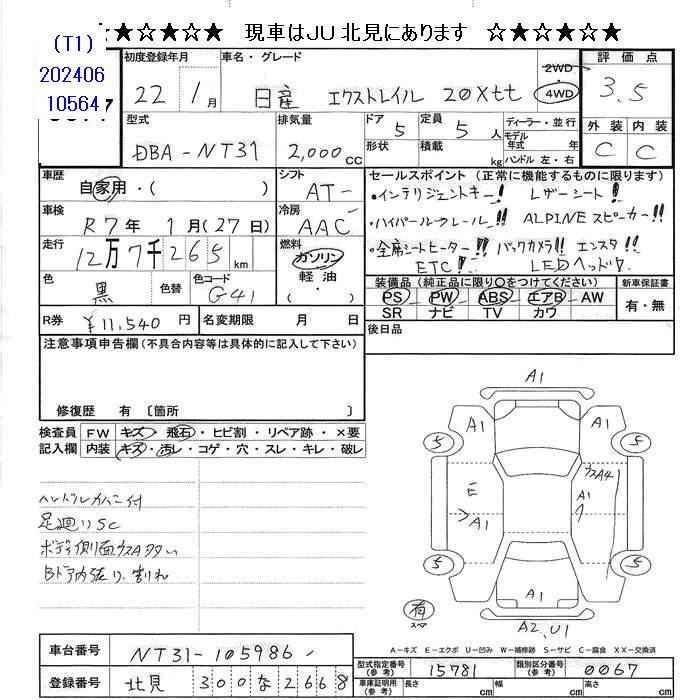 ☆★☆★☆ 現車はJU北見にあります ☆★☆★☆
(T1)
202406
10564
初度登録年月 車名・グレード 2WD・4WD 評価点
22 1月 日産 エクストレイル 20Xtt 3.5
型式 排気量 ドア 5 定員 5人 ディーラー・並行 外装 内装
DBA-NT31 2,000cc 形状 積載 kg モデル年式 年 ハンドル 左・右 C C
車歴 シフト セールスポイント (正常に機能するものに限ります)
自家用・( ) AT- ・インテリジェントキー! レザーシート!
車検 冷房 ・ハイパールーフレール!! ALPINEスピーカー!!
R7年 1月(27日) AAC ・全席シートヒーター!! バックカメラ!! エンスタ!!
走行 燃料 ETC! LEDヘッド
12万7千265km ガソリン・軽油・( )
色 色替 色コード 装備品 (純正品に限り○をつけてください) 新車保証書
黒 G41 PS PW ABS エアB AW 有・無
SR ナビ TV カワ
R券 ¥11,540円 名変期限 月 日 後日品
注意事項申告欄 (不具合内容等は具体的に記入して下さい)
修復歴 有 〔箇所 〕
検査員 FW キズ・飛石・ヒビ割・リペア跡・×要
記入欄 内装 キズ・汚レ・コゲ・穴・スレ・キレ・破レ
A1
A1 A1
5 5
ウスA4
E A1
A1
5 5
A1
有
スペア
A2,U1
ハンドルカバー付
足廻りSC
ボディ側面ウスA多い
Bドア内張り、割れ
A-キズ E-エクボ U-凹み W-補修跡 S-サビ C-腐食 XX-交換済
車台番号 NT31-105986
登録番号 北見 300 な 2668
型式指定番号(参考) 15781 類別区分番号(参考) 0067
車庫証明用(参考) 長さ cm 幅 cm 高さ cm